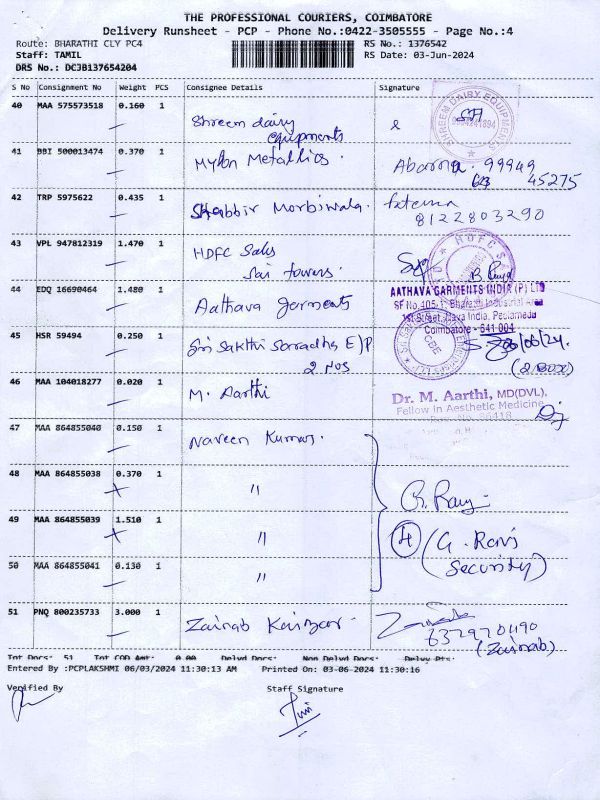 THE PROFESSIONAL COURIERS, COIMBATORE
Delivery Runsheet - PCP - Phone No.:0422-3505555 - Page No.:4
Route: BHARATHI CLY PC4
RS No.: 1376542
Staff: TAMIL
RS Date: 03-Jun-2024
DRS No.: DCJB137654204
S No Consignment No Weight PCS Consignee Details Signature
40 MAA 575573518 0.160 1
Shreem dairy
equipments
SHREEM DAIRY EQUIPMENTS
41 BBI 500013474 0.370 1
Mylon Metallics.
99949
45275
42 TRP 5975622 0.435 1
Shabbir Morbiwala.
Fatema
8122803290
43 VPL 947812319 1.470 1
HDFC Sales
Sai towers.
44 EDQ 16690464 1.480 1
Aathava garments
AATHAVA GARMENTS INDIA (P) LTD
SF No. 405/1, Bharathi Industrial Area
1st Street, Nava India, Peelamedu
Coimbatore - 641 004
45 HSR 59494 0.250 1
Sri Sakthi Sorradha E/P
2 Nos
(2 BOX)
46 MAA 104018277 0.020 1
M. Aarthi
Dr. M. Aarthi, MD(DVL).
Fellow in Aesthetic Medicine
86418
47 MAA 864855040 0.150 1
Naveen Kumar.
48 MAA 864855038 0.370 1
"
49 MAA 864855039 1.510 1
"
4 (G. Ravi
Security)
50 MAA 864855041 0.130 1
"
51 PNQ 800235733 3.000 1
Zainab Kaizar
(Zainab)
Tot Docs: 51 Tot COD Amt: 0.00 Delvd Docs: Non Delvd Docs: Delvy Pts:
Entered By :PCPLAKSHMI 06/03/2024 11:30:13 AM Printed On: 03-06-2024 11:30:16
Verified By
Staff Signature